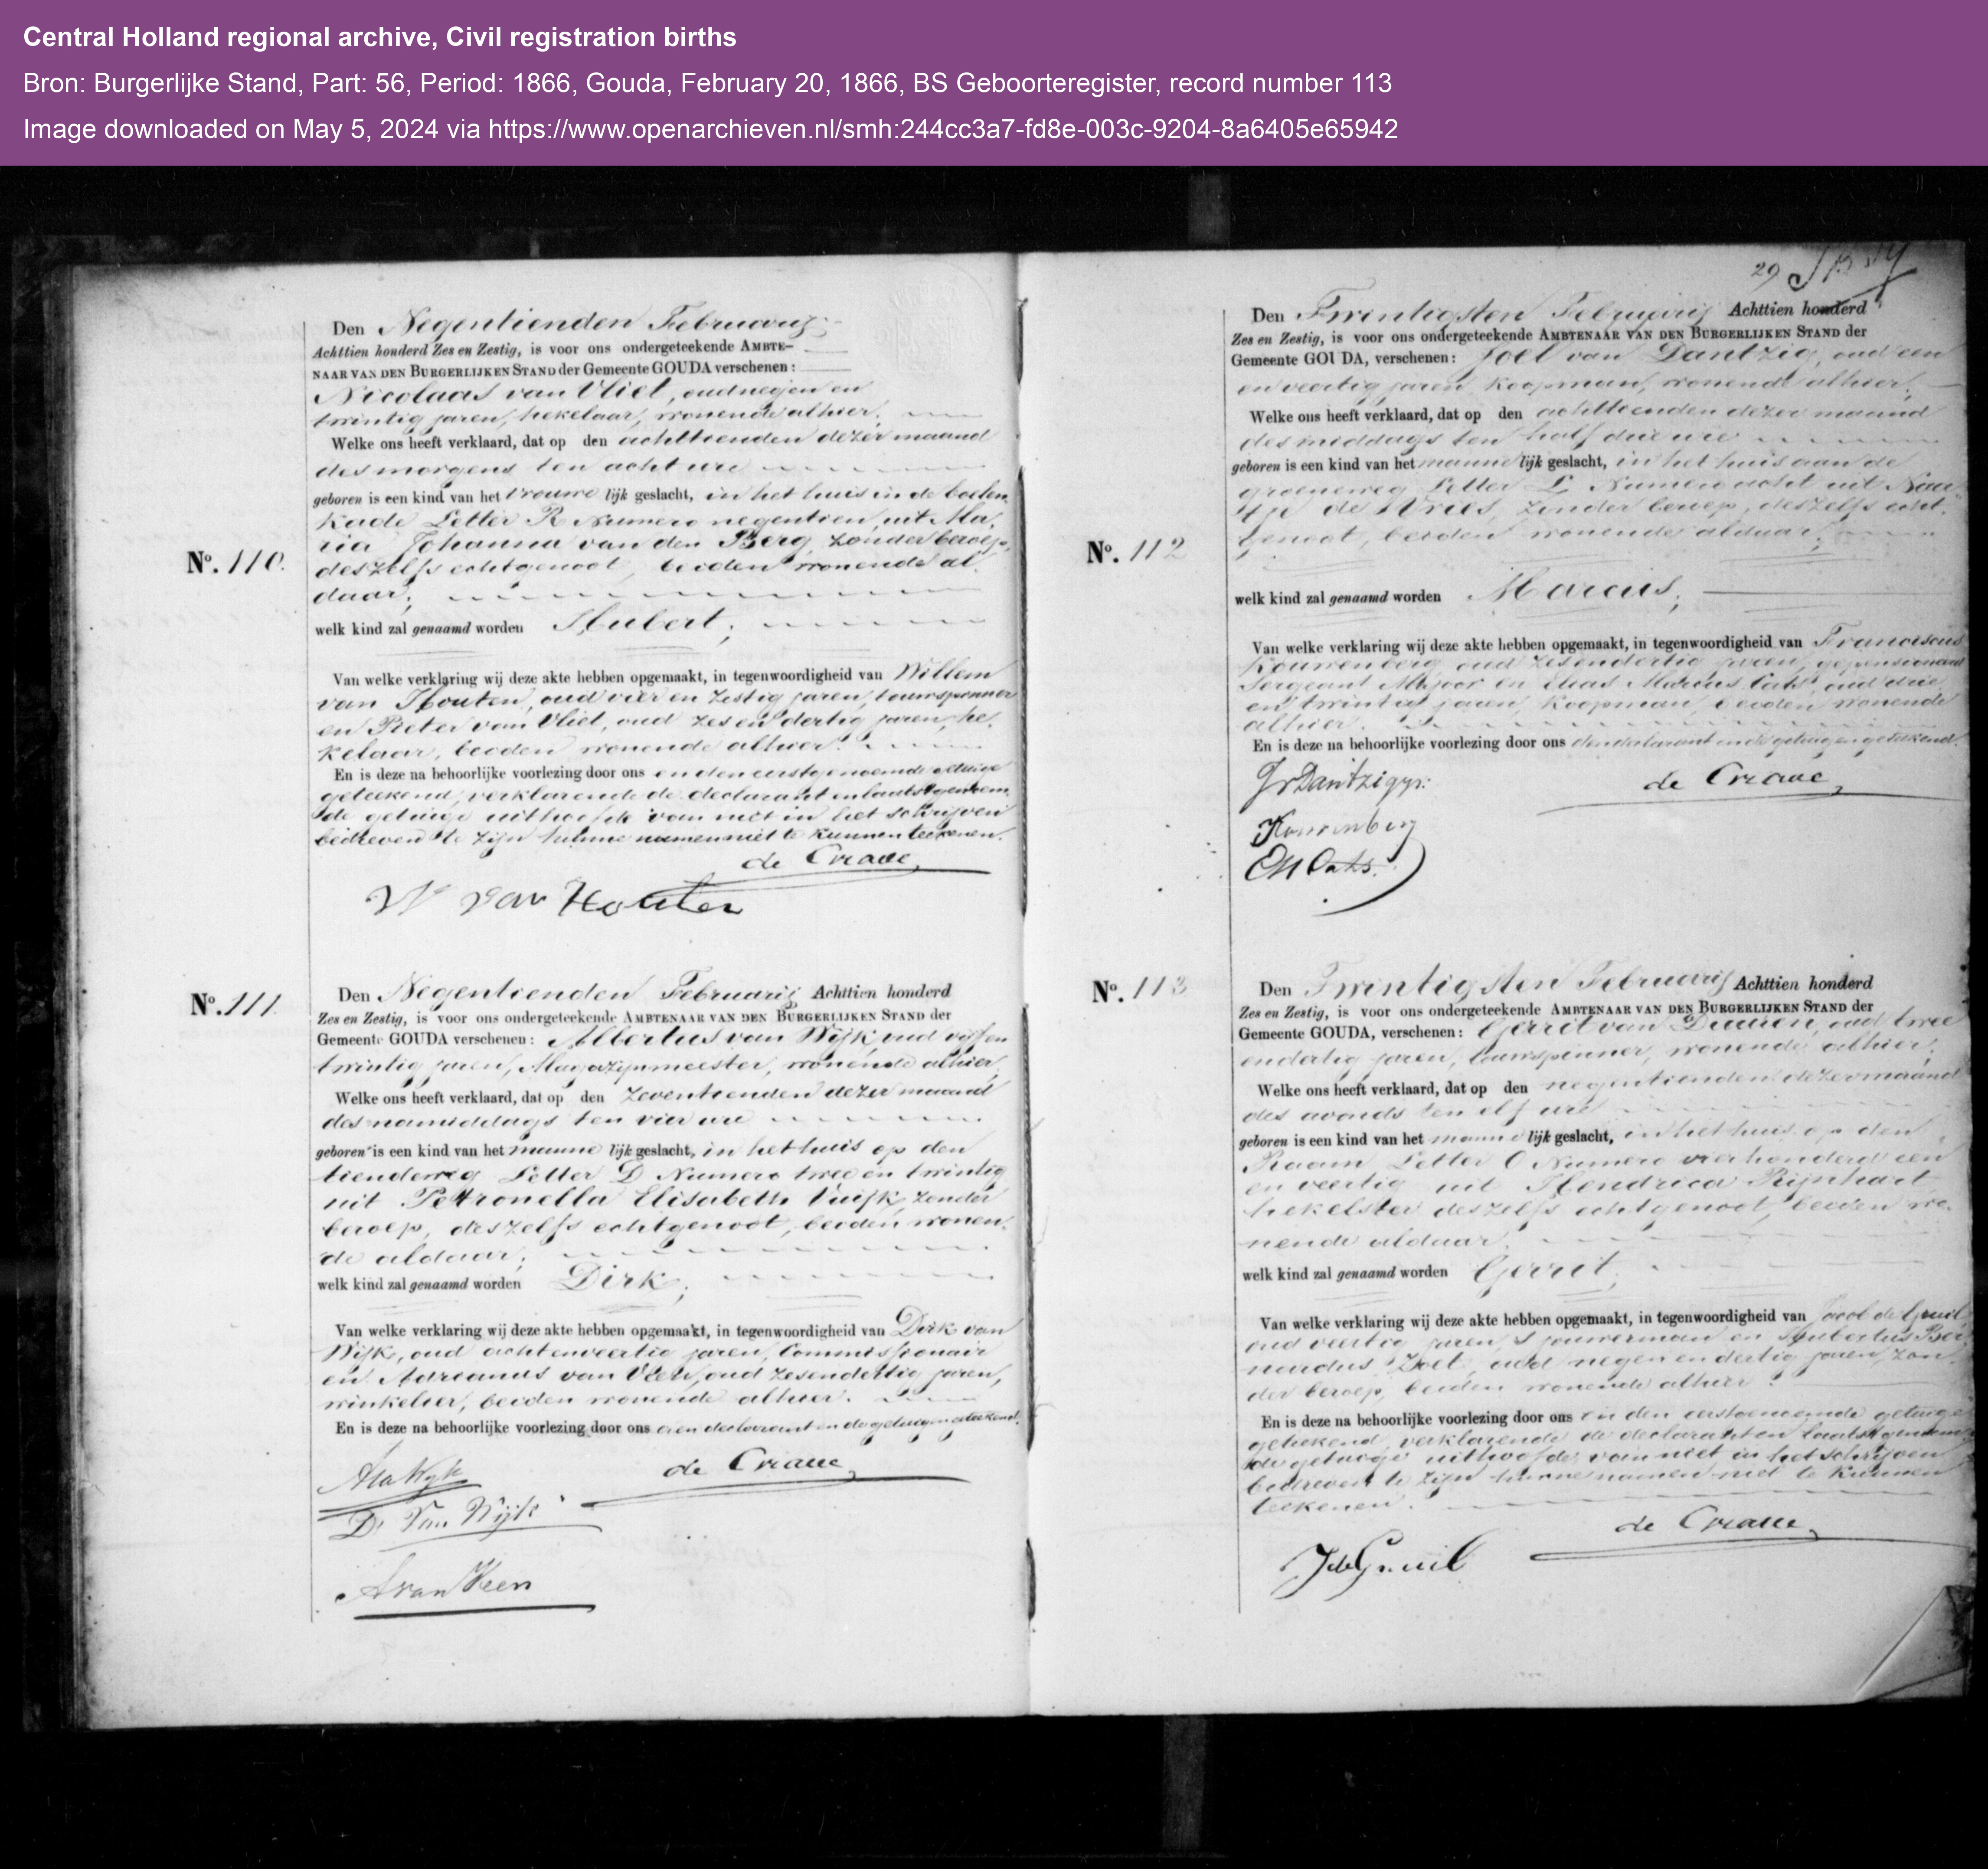 Central Holland regional archive, Civil registration births
Bron: Burgerlijke Stand, Part: 56, Period: 1866, Gouda, February 20, 1866, BS Geboorteregister, record number 113
Image downloaded on May 5, 2024 via https://www.openarchieven.nl/smh:244cc3a7-fd8e-003c-9204-8a6405e65942
No. 110.
Den Negentienden Februarij
Achttien honderd Zes en Zestig, is voor ons ondergeteekende AMBTE-
NAAR VAN DEN BURGERLIJKEN STAND der Gemeente GOUDA verschenen:
Nicolaas van Vliet, oud negen en
twintig jaren, hekelaar, wonende alhier;
Welke ons heeft verklaard, dat op den achttienden dezer maand
des morgens ten acht ure
geboren is een kind van het vrouwe lijk geslacht, in het huis in de
kade Letter R Numero negentien, uit Ma-
ria Johanna van den Berg, zonder beroep,
deszelfs echtgenoot, beiden wonende al-
daar;
welk kind zal genaamd worden Hubert;
Van welke verklaring wij deze akte hebben opgemaakt, in tegenwoordigheid van Willem
van Houten, oud vier en zestig jaren, touwspinner
en Pieter van Vliet, oud zes en dertig jaren, he-
kelaar, beiden wonende alhier.
En is deze na behoorlijke voorlezing door ons en den eerstgenoemde getuige
geteekend, verklarende de declarant en laatstgenoem-
de getuige uithoofde van niet in het schrijven
bedreven te zijn hunne namen niet te kunnen teekenen.
de Craue
W van Houten
No. 111.
Den Negentienden Februarij Achttien honderd
Zes en Zestig, is voor ons ondergeteekende AMBTENAAR VAN DEN BURGERLIJKEN STAND der
Gemeente GOUDA verschenen: Albertus van Wijk, oud vijf en
twintig jaren, Magazijnmeester, wonende alhier,
Welke ons heeft verklaard, dat op den zeventienden dezer maand
des namiddags ten vier ure
geboren is een kind van het manne lijk geslacht, in het huis op den
tiendeweg Letter D Numero twee en twintig
uit Petronella Elisabeth Vuijk, zonder
beroep, deszelfs echtgenoot, beiden wonen-
de aldaar;
welk kind zal genaamd worden Dirk;
Van welke verklaring wij deze akte hebben opgemaakt, in tegenwoordigheid van Dirk van
Wijk, oud acht en veertig jaren, Commissionair
en Adrianus van Veen, oud zes en dertig jaren,
winkelier, beiden wonende alhier.
En is deze na behoorlijke voorlezing door ons den declarant en de getuigen geteekend.
de Craue
D. Van Wijk
A van Veen
29
No. 112
Den Twintigsten Februarij Achttien honderd
Zes en Zestig, is voor ons ondergeteekende AMBTENAAR VAN DEN BURGERLIJKEN STAND der
Gemeente GOUDA, verschenen: Joel van Dantzig, oud een
en veertig jaren, koopman, wonende alhier;
Welke ons heeft verklaard, dat op den achttienden dezer maand
des middags ten half drie ure
geboren is een kind van het manne lijk geslacht, in het huis aan de
groeneweg Letter L Numero acht uit
de Vries, zonder beroep, deszelfs echt-
genoot, beiden wonende aldaar;
welk kind zal genaamd worden Marcus;
Van welke verklaring wij deze akte hebben opgemaakt, in tegenwoordigheid van Franciscus
Kouwenberg oud zes en dertig jaren, gepensioneerd
Sergeant Majoor en Elias Marcus Cats, oud drie
en twintig jaren, koopman, beiden wonende
alhier.
En is deze na behoorlijke voorlezing door ons den declarant en de getuigen geteekend.
de Craue
Kouwenberg
EM Cats.
No. 113
Den Twintigsten Februarij Achttien honderd
Zes en Zestig, is voor ons ondergeteekende AMBTENAAR VAN DEN BURGERLIJKEN STAND der
Gemeente GOUDA, verschenen: Gerrit van Duuren, oud twee
en dertig jaren, touwspinner, wonende alhier;
Welke ons heeft verklaard, dat op den negentienden dezer maand
des avonds ten elf ure
geboren is een kind van het manne lijk geslacht, in het huis op den
Raam Letter O Numero vierhonderd een
en veertig uit Hendrica Rijnhart
hekelster deszelfs echtgenoot, beiden wo-
nende aldaar.
welk kind zal genaamd worden Gerrit;
Van welke verklaring wij deze akte hebben opgemaakt, in tegenwoordigheid van Jacob de Gruil,
oud veertig jaren, sjouwerman en Hubertus Ber-
nardus Zoet, oud negen en dertig jaren, zon-
der beroep, beiden wonende alhier.
En is deze na behoorlijke voorlezing door ons en den eerstgenoemde getuige
geteekend, verklarende de declarant en laatstgenoem-
de getuige uithoofde van niet in het schrijven
bedreven te zijn hunne namen niet te kunnen
teekenen.
de Craue
J de Gruil